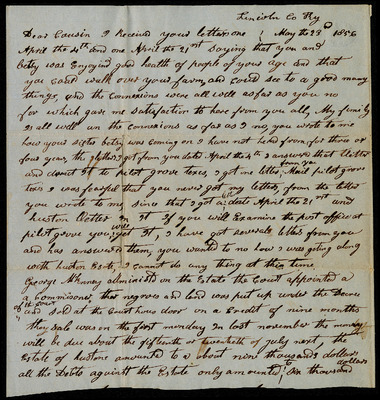 Lincoln Co Ky
Dear Cousin I received your letter one May the 23d 1856
April the 4th and one April the 21st saying that you and
betsy was Enjoying good health of people of your age and that
you could walk over your farm, and could see to a good many
things, and the Connexions were all well as far as you no
for which gave me satisfaction to hear from you all, My family
Is all well an the connexions as far as I no, you wrote to me
how your sister betsy was coming on I have not heard from for three or
four years, the letter I got from you date April the 4th I answered that letter
and derect It to pilot grove texas, I got no letter from you Mail pilot grove
texas I was fearful that you never got my letters, from the letter
you wrote to me, since that I got a letter date April the 21st and
huston letter in It If you will Examine the post office at
pilot grove you will get It, I have got several letter from you
and has answered them, you wanted to no how I was getting along
with huston Estate, I cannot do any thing at this time
George Mhaney administer on the Estate the Court appointed a
a Commissoner, ther negroes and land was put up under the Decree
of the Court and sold at the Court house door on a Credit of nine months
they sale was on the first munday In last november the money
will be due about the fifteenth or twentieth of july next, the
Estate of hustone amounted to a about nine thousands dollars
all the Debts against the Estate only amounted to six thousand dollars